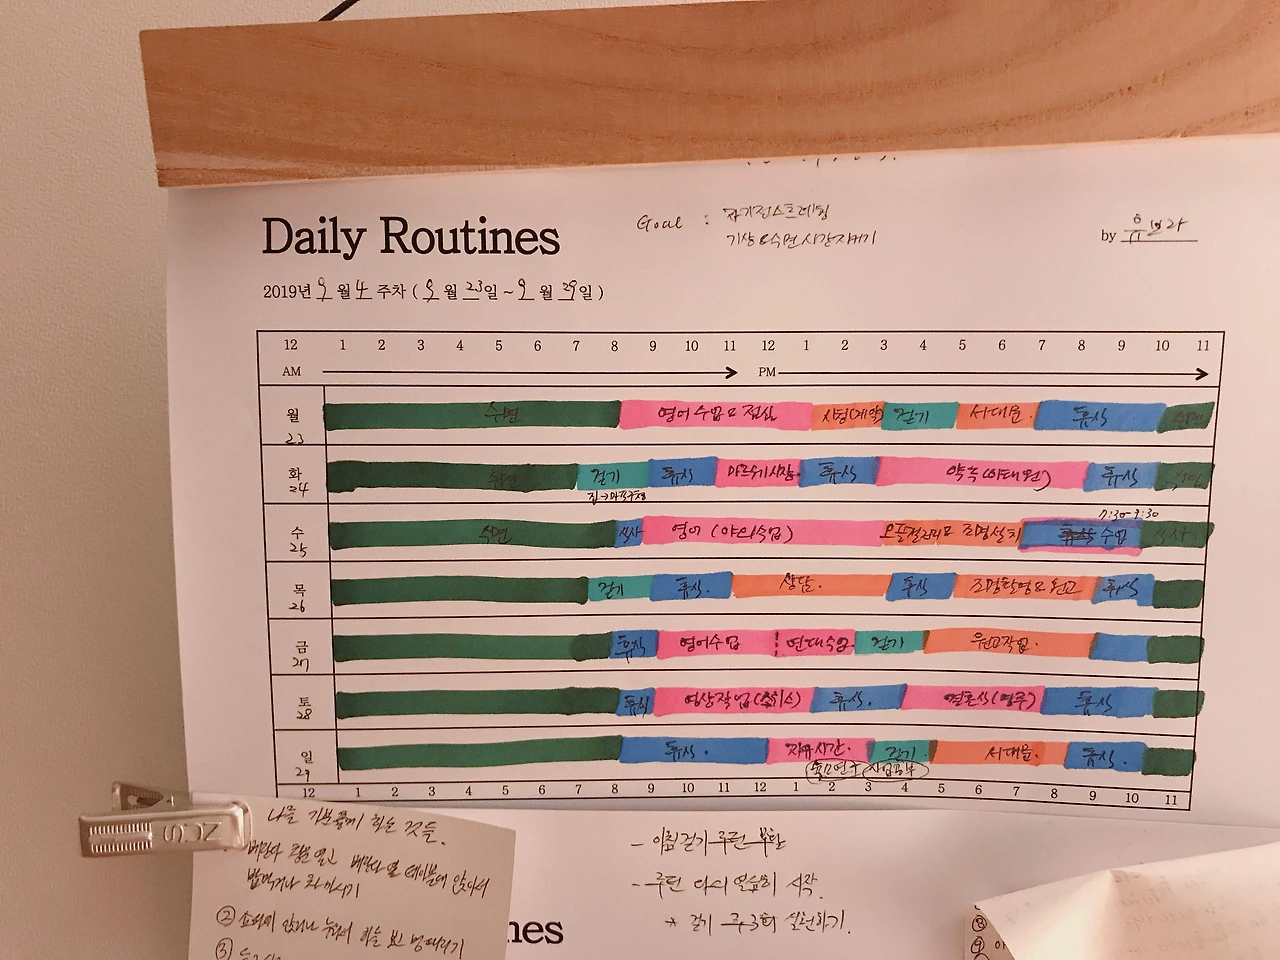 Daily Routines
Goal : 자기전스트레칭
기상&수면시간지키기
by
2019년 9월 4주차 ( 9월 23일 ~ 9월 29일 )
12 1 2 3 4 5 6 7 8 9 10 11 12 1 2 3 4 5 6 7 8 9 10 11
AM PM
월 수면 영어수업&점심 걷기 서대문. 휴식
23
화 수면 걷기 휴식 휴식 약속(이태원) 휴식
24
7:30-9:30
수 수면 식사 영어(야외수업) 조명설치 휴식 수업
25
목 걷기 휴식. 상담. 휴식 조명촬영&원고 휴식
26
금 휴식 영어수업 걷기 원고작업.
27
토 휴식 영상작업 휴식. 결혼식(영주) 휴식
28
일 휴식. 자유시간. 걷기. 서대문. 휴식.
29
12 1 2 3 4 5 6 7 8 9 10 11 12 1 2 3 4 5 6 7 8 9 10 11
NCS
나를 기쁘게 하는 것들.
베란다 창문 열고 베란다 옆 테이블에 앉아서
밥먹거나 차 마시기
② 소파에 앉거나 누워서 하늘 보고 멍때리기
③
- 아침걷기 루틴 부활
- 루틴 다시 열심히 시작.
* 걷기 주 3회 실천하기.
nes
⑧
⑨